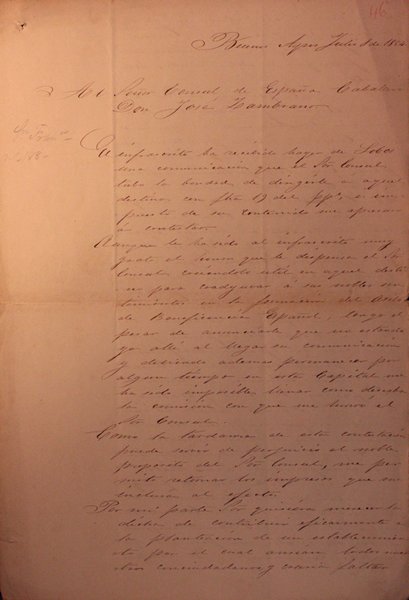 46
Buenos Ayres Julio 8 de 1854
Al Señor Consul de España Caballero
Don José Zambrano
El infrascrito ha recibido hoy de Lobos
una comunicacion que el Sor Consul
tubo la bondad de dirigirle a aquel
destino con fha 17 del ppº, e im-
puesto de su contenido me apresuro
á contestar.
Aunque le ha sido al infrascrito muy
grato el honor que le dispensa el Sor
Consul creiendole util en aquel desti-
no para coadyuvar á sus nobles
en la formacion del Asilo
de Beneficencia Español, tengo el
pesar de anunciarle que no estando
yo allá al llegar su comunicacion
y debiendo ademas permanecer por
algun tiempo en esta Capital me
ha sido imposible llenar como deseaba
la comision con que me honró el
Sor Consul.
Como la tardanza de esta contestacion
puede servir de perjuicio al noble
proposito del Sor Consul, me per-
mito retornar los impresos que me
incluia al efecto.
Por mi parte Sor quisiera merecer la
dicha de contribuir eficazmente a
la planteacion de un establecimien-
to por el cual ansian todos nues-
tros conciudadanos y cuya falta